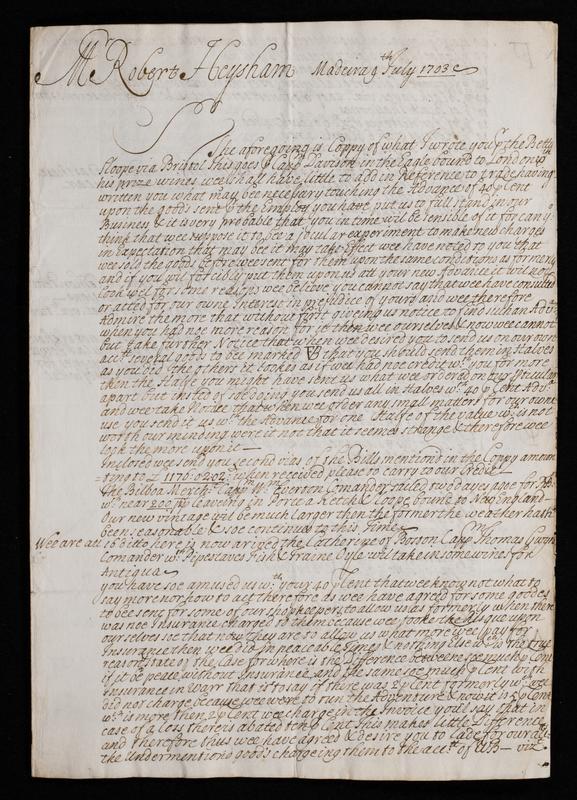 Mr Robert Heysham Madeira 9th July 1703
The aforegoing is Coppy of what I wrote you pr the Betty
Sloope via Bristol this goes p Capt Davison in the Eagle bound to London
his prize wines wee shall have little to add in Reference to trade having
written you what may bee necessary touching the Advance of 40 p Cent
upon the goods sent p the you have put us to full stand in our
Business & it is very probable that you in time will be sensible of it for can y
think that wee suppose it to bee a experiment to make new charges
in Expectation that may bee it may take Effect wee have noted to you that
wee sold the goods before sent for them upon the same conditions as formerly
and if you will forcibly put them upon us att your new Advance it will not
look well for some reasons wee beleive you cannot say that wee have consulted
or acted for our owne Interest in prejudice of yours and wee therefore
Admire the more that without first giveing us notice to find such an Adv
when you had noe more reason for it then wee ourselves & now wee cannot
but take further Notice that when wee desired you to send us on our owne
acct severall goods to bee marked that you should send them in Halves
as you did the others it lookes as if wee had not credit wth you for more
then the Halfe you might have sent us what wee ordered on our
apart but insted of soe doing you send us all in Halves wth 40 p Cent Adva
and wee take Notice that when wee order any small matters for our owne
use you send it us wth the Advance for one Halfe of the value wch is not
worth our minding were it not that it seemes strange & therefore wee
look the more upon it
Inclosed wee send you second vias of the Bills mentioned in the Coppy amoun
=ting to £ 1170:02:02 when received please to carry to our Credit
the Bilboa Mercht Capp Wm Everton Comander sailed two dayes agoe for
wth near 200 leaveing in Porta a Ketch & Sloope bound to New England
Our new vintage will bee much larger then the former the weather hath
been seasonable & soe continues to this Time
Wee are at is ditto here is now arived the Catherine of Boston Capp Thomas
Comander wth Pipestaves Fish & Traine Oyle will take in some wines for
Antigua
you have soe amused us wth your 40 p Cent that wee know not what to
say more or how to act therefore as wee have agreed for some goods
to bee sent for some of our shopkeepers to allow us as formerly when there
was noe Insurance charged to them because wee tooke the upon
ourselves soe that now they are to allow us what more wee pay for
Insurance then wee did in peaceable Times & nothing else & is the true
reason & state of the case for where is the difference betweene soe much p Cent
if it be peace without Insurance and the same soe much p Cent with
insurance in Warr that is to say if there was p Cent formerly wch wee
did not charge because wee were to run the adventure & now it is p Cent
wch is more then p Cent wee charge in the Invoice you'l say that in
case of a Loss there is abated ten p Cent This makes little Difference
and therefore thus wee have agreed & desire you to Lade for our
the Undermentioned goods chargeing them to the acct of viz